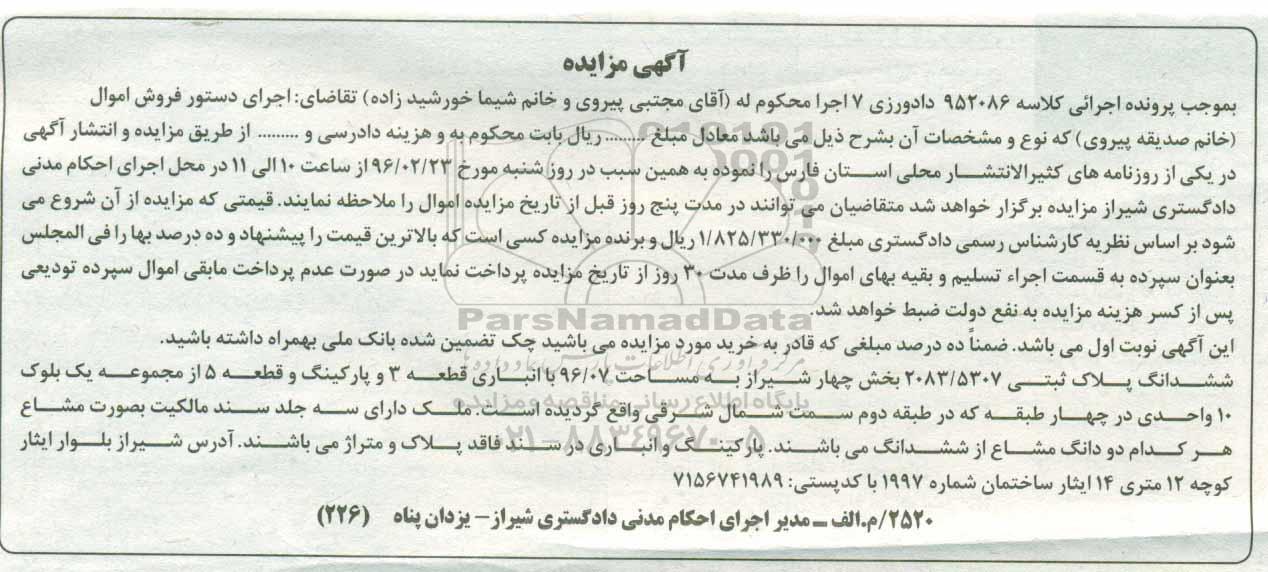 آگهی مزایده
بموجب پرونده اجرائی کلاسه ۹۵۲۰۸۶ دادورزی ۷ اجرا محکوم له (آقای مجتبی پیروی و خانم شیما خورشید زاده) تقاضای: اجرای دستور فروش اموال
(خانم صدیقه پیروی) که نوع و مشخصات آن بشرح ذیل می باشد معادل مبلغ ......... ریال بابت محکوم به و هزینه دادرسی و ......... از طریق مزایده و انتشار آگهی
در یکی از روزنامه های کثیرالانتشار محلی استان فارس را نموده به همین سبب در روز شنبه مورخ ۹۶/۰۲/۲۳ از ساعت ۱۰ الی ۱۱ در محل اجرای احکام مدنی
دادگستری شیراز مزایده برگزار خواهد شد متقاضیان می توانند در مدت پنج روز قبل از تاریخ مزایده اموال را ملاحظه نمایند. قیمتی که مزایده از آن شروع می
شود بر اساس نظریه کارشناس رسمی دادگستری مبلغ ۱/۸۲۵/۳۳۰/۰۰۰ ریال و برنده مزایده کسی است که بالاترین قیمت را پیشنهاد و ده درصد بها را فی المجلس
بعنوان سپرده به قسمت اجراء تسلیم و بقیه بهای اموال را ظرف مدت ۳۰ روز از تاریخ مزایده پرداخت نماید در صورت عدم پرداخت مابقی اموال سپرده تودیعی
پس از کسر هزینه مزایده به نفع دولت ضبط خواهد شد.
این آگهی نوبت اول می باشد. ضمناً ده درصد مبلغی که قادر به خرید مورد مزایده می باشید چک تضمین شده بانک ملی بهمراه داشته باشید.
ششدانگ پلاک ثبتی ۲۰۸۳/۵۳۰۷ بخش چهار شیراز به مساحت ۹۶/۰۷ با انباری قطعه ۳ و پارکینگ و قطعه ۵ از مجموعه یک بلوک
۱۰ واحدی در چهار طبقه که در طبقه دوم سمت شمال شرقی واقع گردیده است. ملک دارای سه جلد سند مالکیت بصورت مشاع
هر کدام دو دانگ مشاع از ششدانگ می باشند. پارکینگ و انباری در سند فاقد پلاک و متراژ می باشند. آدرس شیراز بلوار ایثار
کوچه ۱۲ متری ۱۴ ایثار ساختمان شماره ۱۹۹۷ با کدپستی: ۷۱۵۶۷۴۱۹۸۹
۲۵۲۰/م.الف ــ مدیر اجرای احکام مدنی دادگستری شیراز- یزدان پناه (۲۲۶)
ParsNamadData
پایگاه اطلاع رسانی مناقصه و مزایده
۰۲۱-۸۸۳۴۹۶۷۰-۵